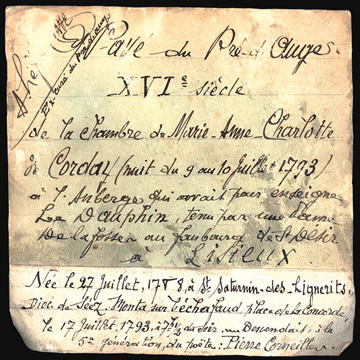 Pavé du Pré-d'Auge
XVIe siècle
de la Chambre de Marie-Anne Charlotte
de Corday (nuit du 9 au 10 Juillet 1793)
à l'Auberge qui avait pour enseigne
Le Dauphin, tenu par une Dame
De la fosse au faubourg de St Désir
à Lisieux
Née le 27 Juillet, 1768, à St Saturnin-des-Lignerits,
Dioc. de Séez. Monta sur l'échafaud place de la Concorde,
le 17 Juillet 1793, à 7h½ du soir. Descendait, à la
5e génération, du poète: Pierre Corneille.